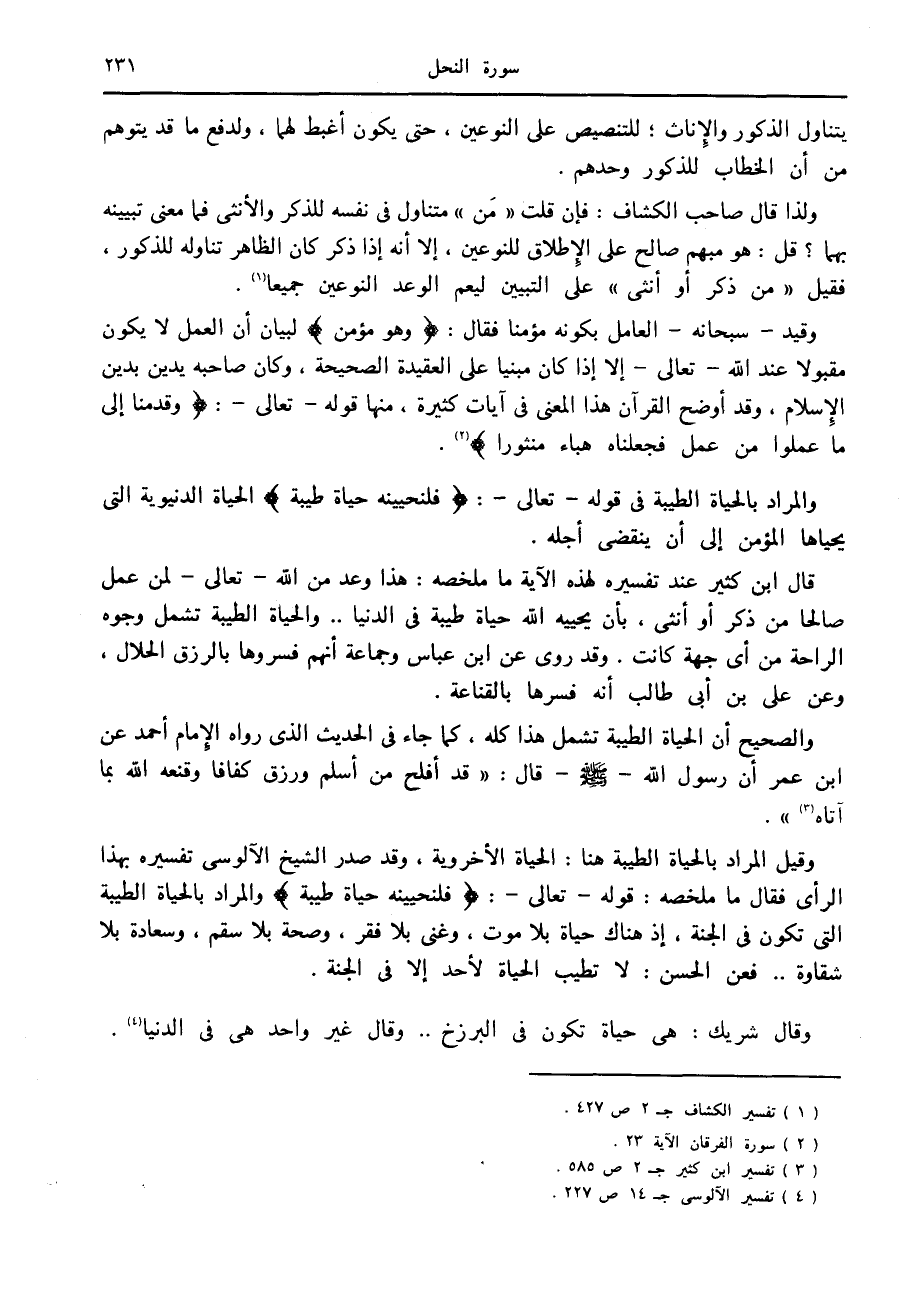 سورة النحل ٢٣١
يتناول الذكور والإناث ؛ للتنصيص على النوعين ، حتى يكون أغبط لهما ، ولدفع ما قد يتوهم
من أن الخطاب للذكور وحدهم .
ولذا قال صاحب الكشاف : فإن قلت « مَن » متناول فى نفسه للذكر والأنثى فما معنى تبيينه
بهما ؟ قل : هو مبهم صالح على الإطلاق للنوعين ، إلا أنه إذا ذكر كان الظاهر تناوله للذكور ،
فقيل « من ذكر أو أنثى » على التبيين ليعم الوعد النوعين جميعا(١) .
وقيد – سبحانه – العامل بكونه مؤمنا فقال : ﴿ وهو مؤمن ﴾ لبيان أن العمل لا يكون
مقبولا عند الله – تعالى – إلا إذا كان مبنيا على العقيدة الصحيحة ، وكان صاحبه يدين بدين
الإسلام ، وقد أوضح القرآن هذا المعنى فى آيات كثيرة ، منها قوله – تعالى – : ﴿ وقدمنا إلى
ما عملوا من عمل فجعلناه هباء منثورا ﴾(٢) .
والمراد بالحياة الطيبة فى قوله – تعالى – : ﴿ فلنحيينه حياة طيبة ﴾ الحياة الدنيوية التى
يحياها المؤمن إلى أن ينقضى أجله .
قال ابن كثير عند تفسيره لهذه الآية ما ملخصه : هذا وعد من الله – تعالى – لمن عمل
صالحا من ذكر أو أنثى ، بأن يحييه الله حياة طيبة فى الدنيا .. والحياة الطيبة تشمل وجوه
الراحة من أى جهة كانت . وقد روى عن ابن عباس وجماعة أنهم فسروها بالرزق الحلال ،
وعن على بن أبى طالب أنه فسرها بالقناعة .
والصحيح أن الحياة الطيبة تشمل هذا كله ، كما جاء فى الحديث الذى رواه الإمام أحمد عن
ابن عمر أن رسول الله – ﷺ – قال : « قد أفلح من أسلم ورزق كفافا وقنعه الله بما
آتاه(٣) » .
وقيل المراد بالحياة الطيبة هنا : الحياة الأخروية ، وقد صدر الشيخ الآلوسى تفسيره بهذا
الرأى فقال ما ملخصه : قوله – تعالى – : ﴿ فلنحيينه حياة طيبة ﴾ والمراد بالحياة الطيبة
التى تكون فى الجنة ، إذ هناك حياة بلا موت ، وغنى بلا فقر ، وصحة بلا سقم ، وسعادة بلا
شقاوة .. فعن الحسن : لا تطيب الحياة لأحد إلا فى الجنة .
وقال شريك : هى حياة تكون فى البرزخ .. وقال غير واحد هى فى الدنيا(٤) .
( ١ ) تفسير الكشاف جـ ٢ ص ٤٢٧ .
( ٢ ) سورة الفرقان الآية ٢٣ .
( ٣ ) تفسير ابن كثير جـ ٢ ص ٥٨٥ .
( ٤ ) تفسير الآلوسى جـ ١٤ ص ٢٢٧ .